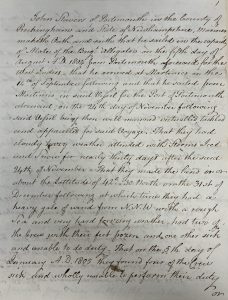 John Seaver of Portsmouth in the County of
Rockingham and State of New Hampshire, Mariner
maketh Oath and saith that he sailed in the capacity
of Mate of the Brig on the fifth day of
August A.D. 1804 from Portsmouth aforesaid for the
West Indies, that he arrived at Martinico on the
14th of September following and that he sailed from
Martinico in said Vessel for the Port of Portsmouth
aforesaid on the 24th day of November following
said Vessel being then well manned victualed tackled
and apparelled for said Voyage. That they had
cloudy heavy weather attended with Storms Hail
and Snow for nearly thirty days after the said
24th of November. That they made the land on or
about the Lattitude of 42 North on the 31st of
December following at which time they had a
heavy gale of wind from N.N.W with a rough
Sea and very hard freezing weather, and two of
the crew with their feet frozen and one other sick
and unable to do duty. That on the 5th day of
January A.D. 1805 they found four of the Crew
sick and wholly unable to perform their duty